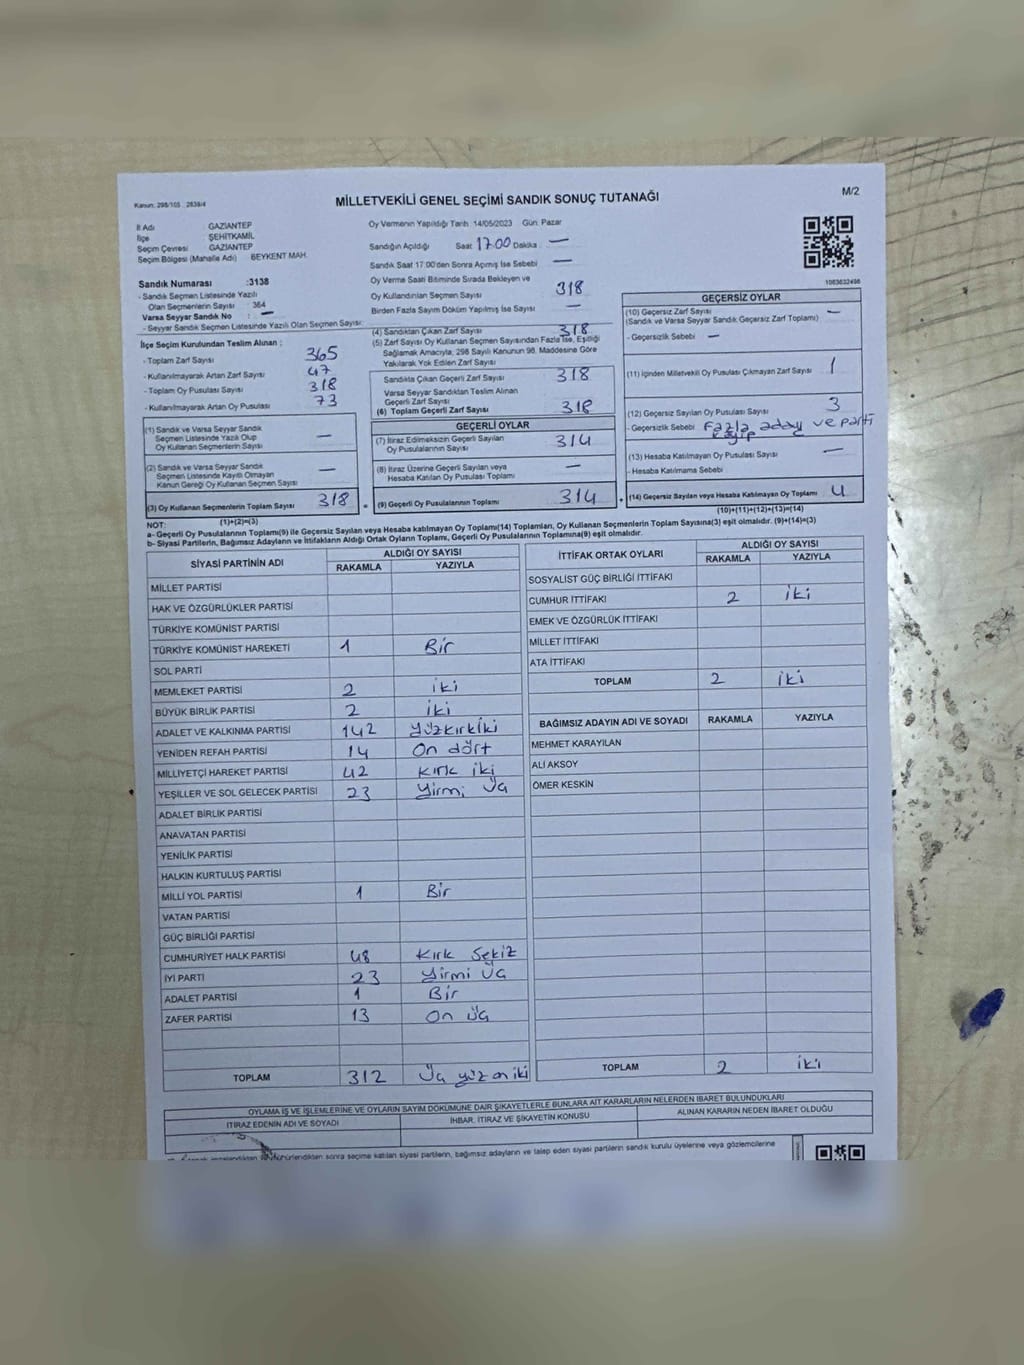 Kanun: 298/105 2839/4
MİLLETVEKİLİ GENEL SEÇİMİ SANDIK SONUÇ TUTANAĞI
M/2
İl Adı GAZİANTEP
İlçe ŞEHİTKAMİL
Seçim Çevresi GAZİANTEP
Seçim Bölgesi (Mahalle Adı) BEYKENT MAH.
Oy Vermenin Yapıldığı Tarih: 14/05/2023 Gün: Pazar
Sandığın Açıldığı Saat 17:00 Dakika : —
Sandık Saat 17:00'den Sonra Açılmış İse Sebebi —
Oy Verme Saati Bitiminde Sırada Bekleyen ve
Oy Kullandırılan Seçmen Sayısı 318
Birden Fazla Sayım Döküm Yapılmış İse Sayısı —
Sandık Numarası :3138
- Sandık Seçmen Listesinde Yazılı
Olan Seçmenlerin Sayısı : 364
Varsa Seyyar Sandık No : —
- Seyyar Sandık Seçmen Listesinde Yazılı Olan Seçmen Sayısı:
İlçe Seçim Kurulundan Teslim Alınan ;
- Toplam Zarf Sayısı 365
- Kullanılmayarak Artan Zarf Sayısı 47
- Toplam Oy Pusulası Sayısı 318
- Kullanılmayarak Artan Oy Pusulası 73
(1) Sandık ve Varsa Seyyar Sandık
Seçmen Listesinde Yazılı Olup
Oy Kullanan Seçmenlerin Sayısı —
(2) Sandık ve Varsa Seyyar Sandık
Seçmen Listesinde Kayıtlı Olmayan
Kanun Gereği Oy Kullanan Seçmen Sayısı —
(3) Oy Kullanan Seçmenlerin Toplam Sayısı 318
(1)+(2)=(3)
(4) Sandıktan Çıkan Zarf Sayısı 318
(5) Zarf Sayısı Oy Kullanan Seçmen Sayısından Fazla İse, Eşitliği
Sağlamak Amacıyla, 298 Sayılı Kanunun 98. Maddesine Göre
Yakılarak Yok Edilen Zarf Sayısı
Sandıkta Çıkan Geçerli Zarf Sayısı 318
Varsa Seyyar Sandıktan Teslim Alınan
Geçerli Zarf Sayısı
(6) Toplam Geçerli Zarf Sayısı 318
GEÇERLİ OYLAR
(7) İtiraz Edilmeksizin Geçerli Sayılan
Oy Pusulalarının Sayısı 314
(8) İtiraz Üzerine Geçerli Sayılan veya
Hesaba Katılan Oy Pusulası Toplamı —
(9) Geçerli Oy Pusulalarının Toplamı 314
1083632498
GEÇERSİZ OYLAR
(10) Geçersiz Zarf Sayısı —
(Sandık ve Varsa Seyyar Sandık Geçersiz Zarf Toplamı)
- Geçersizlik Sebebi —
(11) İçinden Milletvekili Oy Pusulası Çıkmayan Zarf Sayısı 1
(12) Geçersiz Sayılan Oy Pusulası Sayısı 3
- Geçersizlik Sebebi Fazla aday ve parti
(13) Hesaba Katılmayan Oy Pusulası Sayısı —
- Hesaba Katılmama Sebebi
(14) Geçersiz Sayılan veya Hesaba Katılmayan Oy Toplamı 4
(10)+(11)+(12)+(13)=(14)
NOT:
a- Geçerli Oy Pusulasının Toplamı(9) ile Geçersiz Sayılan veya Hesaba katılmayan Oy Toplamı(14) Toplamları, Oy Kullanan Seçmenlerin Toplam Sayısına(3) eşit olmalıdır. (9)+(14)=(3)
b- Siyasi Partilerin, Bağımsız Adayların ve İttifakların Aldığı Ortak Oyların Toplamı, Geçerli Oy Pusulalarının Toplamına(9) eşit olmalıdır.
SİYASİ PARTİNİN ADI ALDIĞI OY SAYISI
RAKAMLA YAZIYLA
MİLLET PARTİSİ
HAK VE ÖZGÜRLÜKLER PARTİSİ
TÜRKİYE KOMÜNİST PARTİSİ
TÜRKİYE KOMÜNİST HAREKETİ 1 Bir
SOL PARTİ
MEMLEKET PARTİSİ 2 iki
BÜYÜK BİRLİK PARTİSİ 2 iki
ADALET VE KALKINMA PARTİSİ 142 yüzkırkiki
YENİDEN REFAH PARTİSİ 14 On dört
MİLLİYETÇİ HAREKET PARTİSİ 42 Kırk iki
YEŞİLLER VE SOL GELECEK PARTİSİ 23 Yirmi Üç
ADALET BİRLİK PARTİSİ
ANAVATAN PARTİSİ
YENİLİK PARTİSİ
HALKIN KURTULUŞ PARTİSİ
MİLLİ YOL PARTİSİ 1 Bir
VATAN PARTİSİ
GÜÇ BİRLİĞİ PARTİSİ
CUMHURİYET HALK PARTİSİ 48 Kırk Sekiz
İYİ PARTİ 23 Yirmi Üç
ADALET PARTİSİ 1 Bir
ZAFER PARTİSİ 13 On Üç
TOPLAM 312 Üç yüz on iki
İTTİFAK ORTAK OYLARI ALDIĞI OY SAYISI
RAKAMLA YAZIYLA
SOSYALİST GÜÇ BİRLİĞİ İTTİFAKI
CUMHUR İTTİFAKI 2 iki
EMEK VE ÖZGÜRLÜK İTTİFAKI
MİLLET İTTİFAKI
ATA İTTİFAKI
TOPLAM 2 iki
BAĞIMSIZ ADAYIN ADI VE SOYADI RAKAMLA YAZIYLA
MEHMET KARAYILAN
ALİ AKSOY
ÖMER KESKİN
TOPLAM 2 iki
OYLAMA İŞ VE İŞLEMLERİNE VE OYLARIN SAYIM DÖKÜMÜNE DAİR ŞİKAYETLERLE BUNLARA AİT KARARLARIN NELERDEN İBARET BULUNDUKLARI
İTİRAZ EDENİN ADI VE SOYADI İHBAR, İTİRAZ VE ŞİKAYETİN KONUSU ALINAN KARARIN NEDEN İBARET OLDUĞU
sonra seçime katılan siyasi partilerin, bağımsız adayların ve talep eden siyasi partilerin sandık kurulu üyelerine veya gözlemcilerine